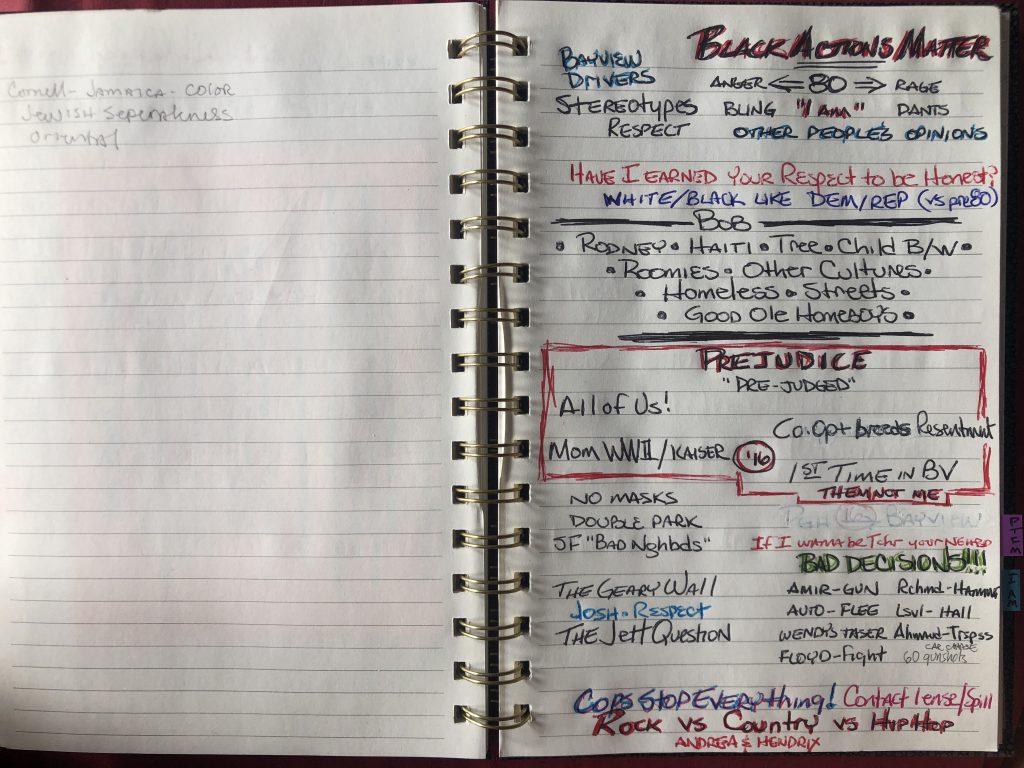 Cornell - JAMAICA - COLOR
JEWISH Seperatness
oriental
BLACK ACTIONS MATTER
BAYVIEW
DRIVERS
ANGER <= 80 => RAGE
STEREOTYPES BLING "I am" PANTS
RESPECT OTHER PEOPLE'S OPINIONS
HAVE I EARNED YOUR RESPECT to be Honest?
WHITE/BLACK LIKE DEM/REP (VS pre80)
BOB
• RODNEY • HAITI • Tree • Child B/W •
• Roomies • Other Cultures •
• Homeless • Streets •
• Good Ole Homeboys •
PREJUDICE
"PRE-JUDGED"
All of Us!
Co-Opt breeds Resentment
MOM WWII/KAISER '16
1ST TIME IN BV
THEM NOT ME
NO MASKS
DOUBLE PARK
PGH BAYVIEW
JF "BAD Nghbds"
If I WANNA be Tchr your NEHBD
BAD DECISIONS!!!!
THE GEARY WALL
AMIR-GUN Rchmd-Hammr
JOSH - RESPECT
AUTO-FLEE Lsvl-Hall
THE Jett Question
WENDY'S TASER Ahmaud-Trspss
CAR CHASE
FLOYD-Fight 60 gunshots
COPS STOP EVERYthing! Contact lense/Spill
ROCK VS Country VS HIP HOP
ANDREA & HENDRIX
PTFM
I AM